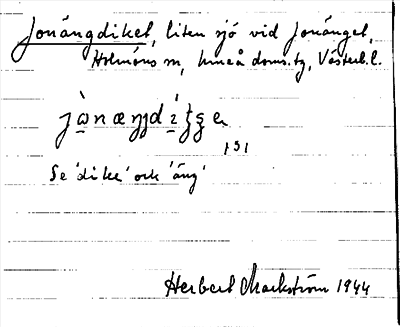 Jonängdiket, liten sjö vid Jonänget,
Holmöns sn, Umeå doms.tg, Västerb.l.
131
Se 'dike' och 'äng'
Herbert Markström 1944